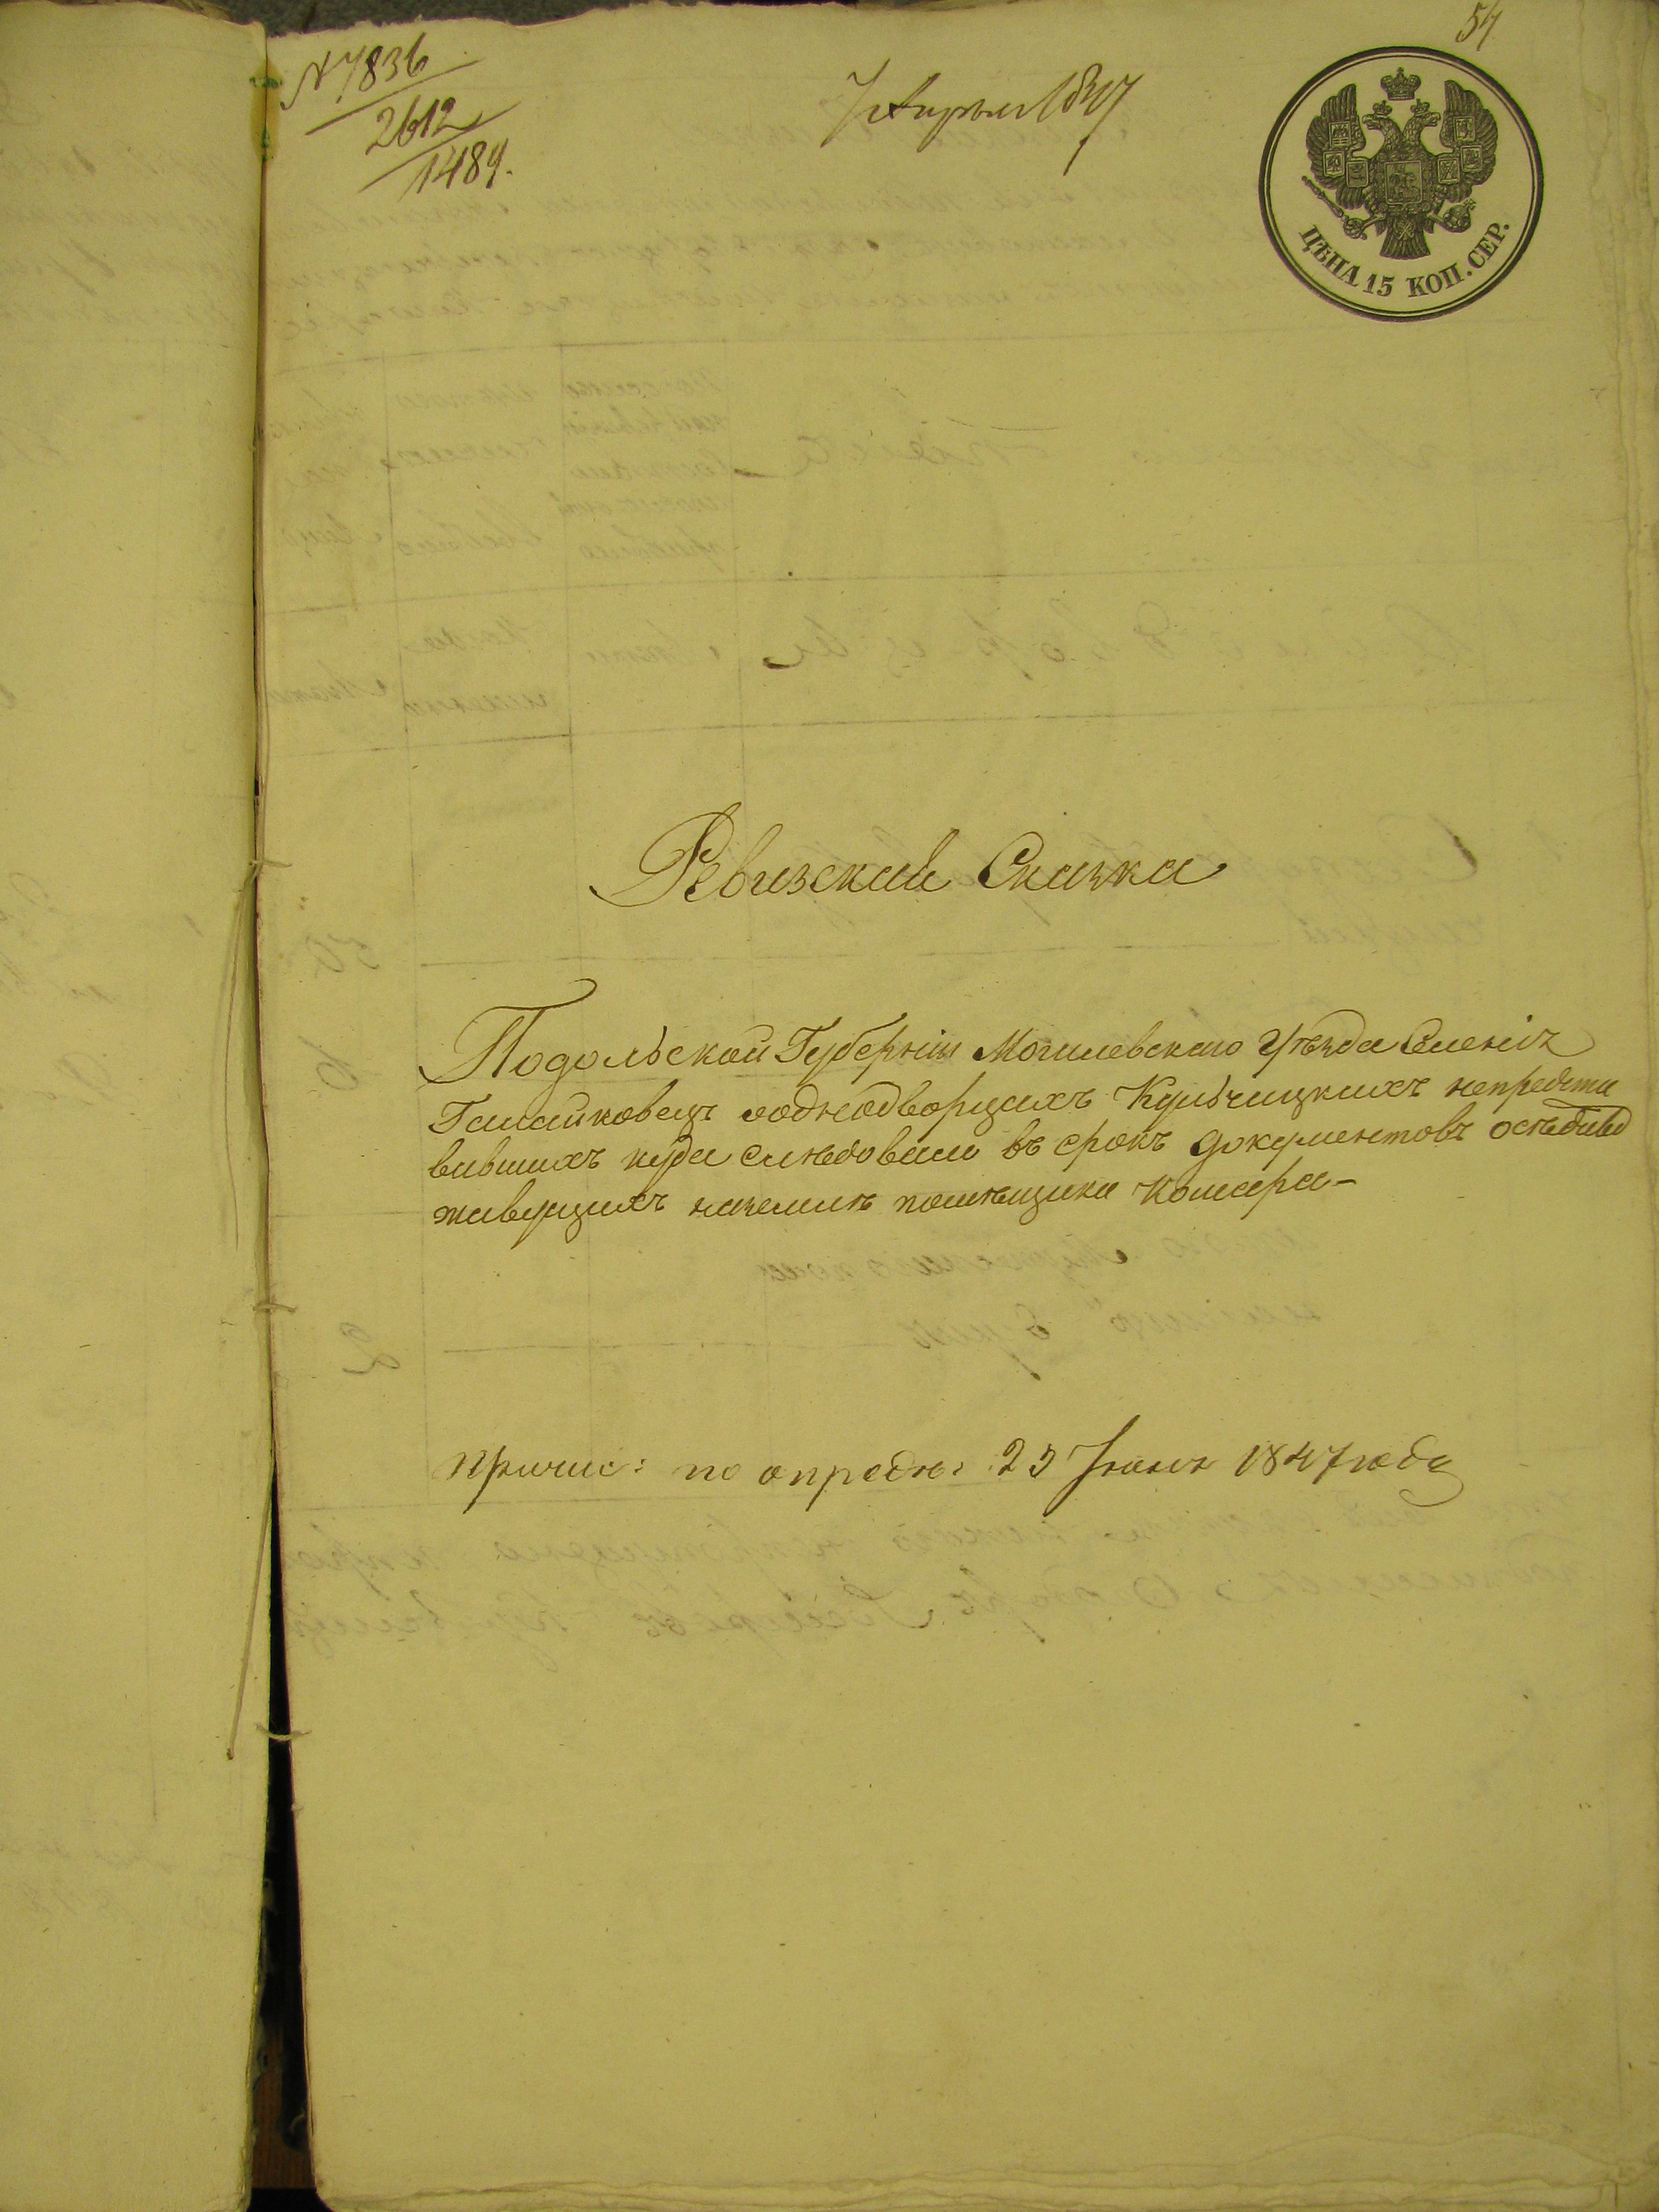 54
N 7836
2612
1484.
7 Апреля 1847
ЦѢНА 15 КОП. СЕР.
Ревизская Сказка
Подольской Губерніи Могилевскаго Уѣзда Селенія
Галайковецъ ооднодворцахъ Кульчицкихъ непредста
вившихъ куда слѣдовало въ срокъ документовъ осѣдло
живущихъ наземлѣ помѣщика Комара-
Причис: по опредѣ: 23 Іюня 1847 года